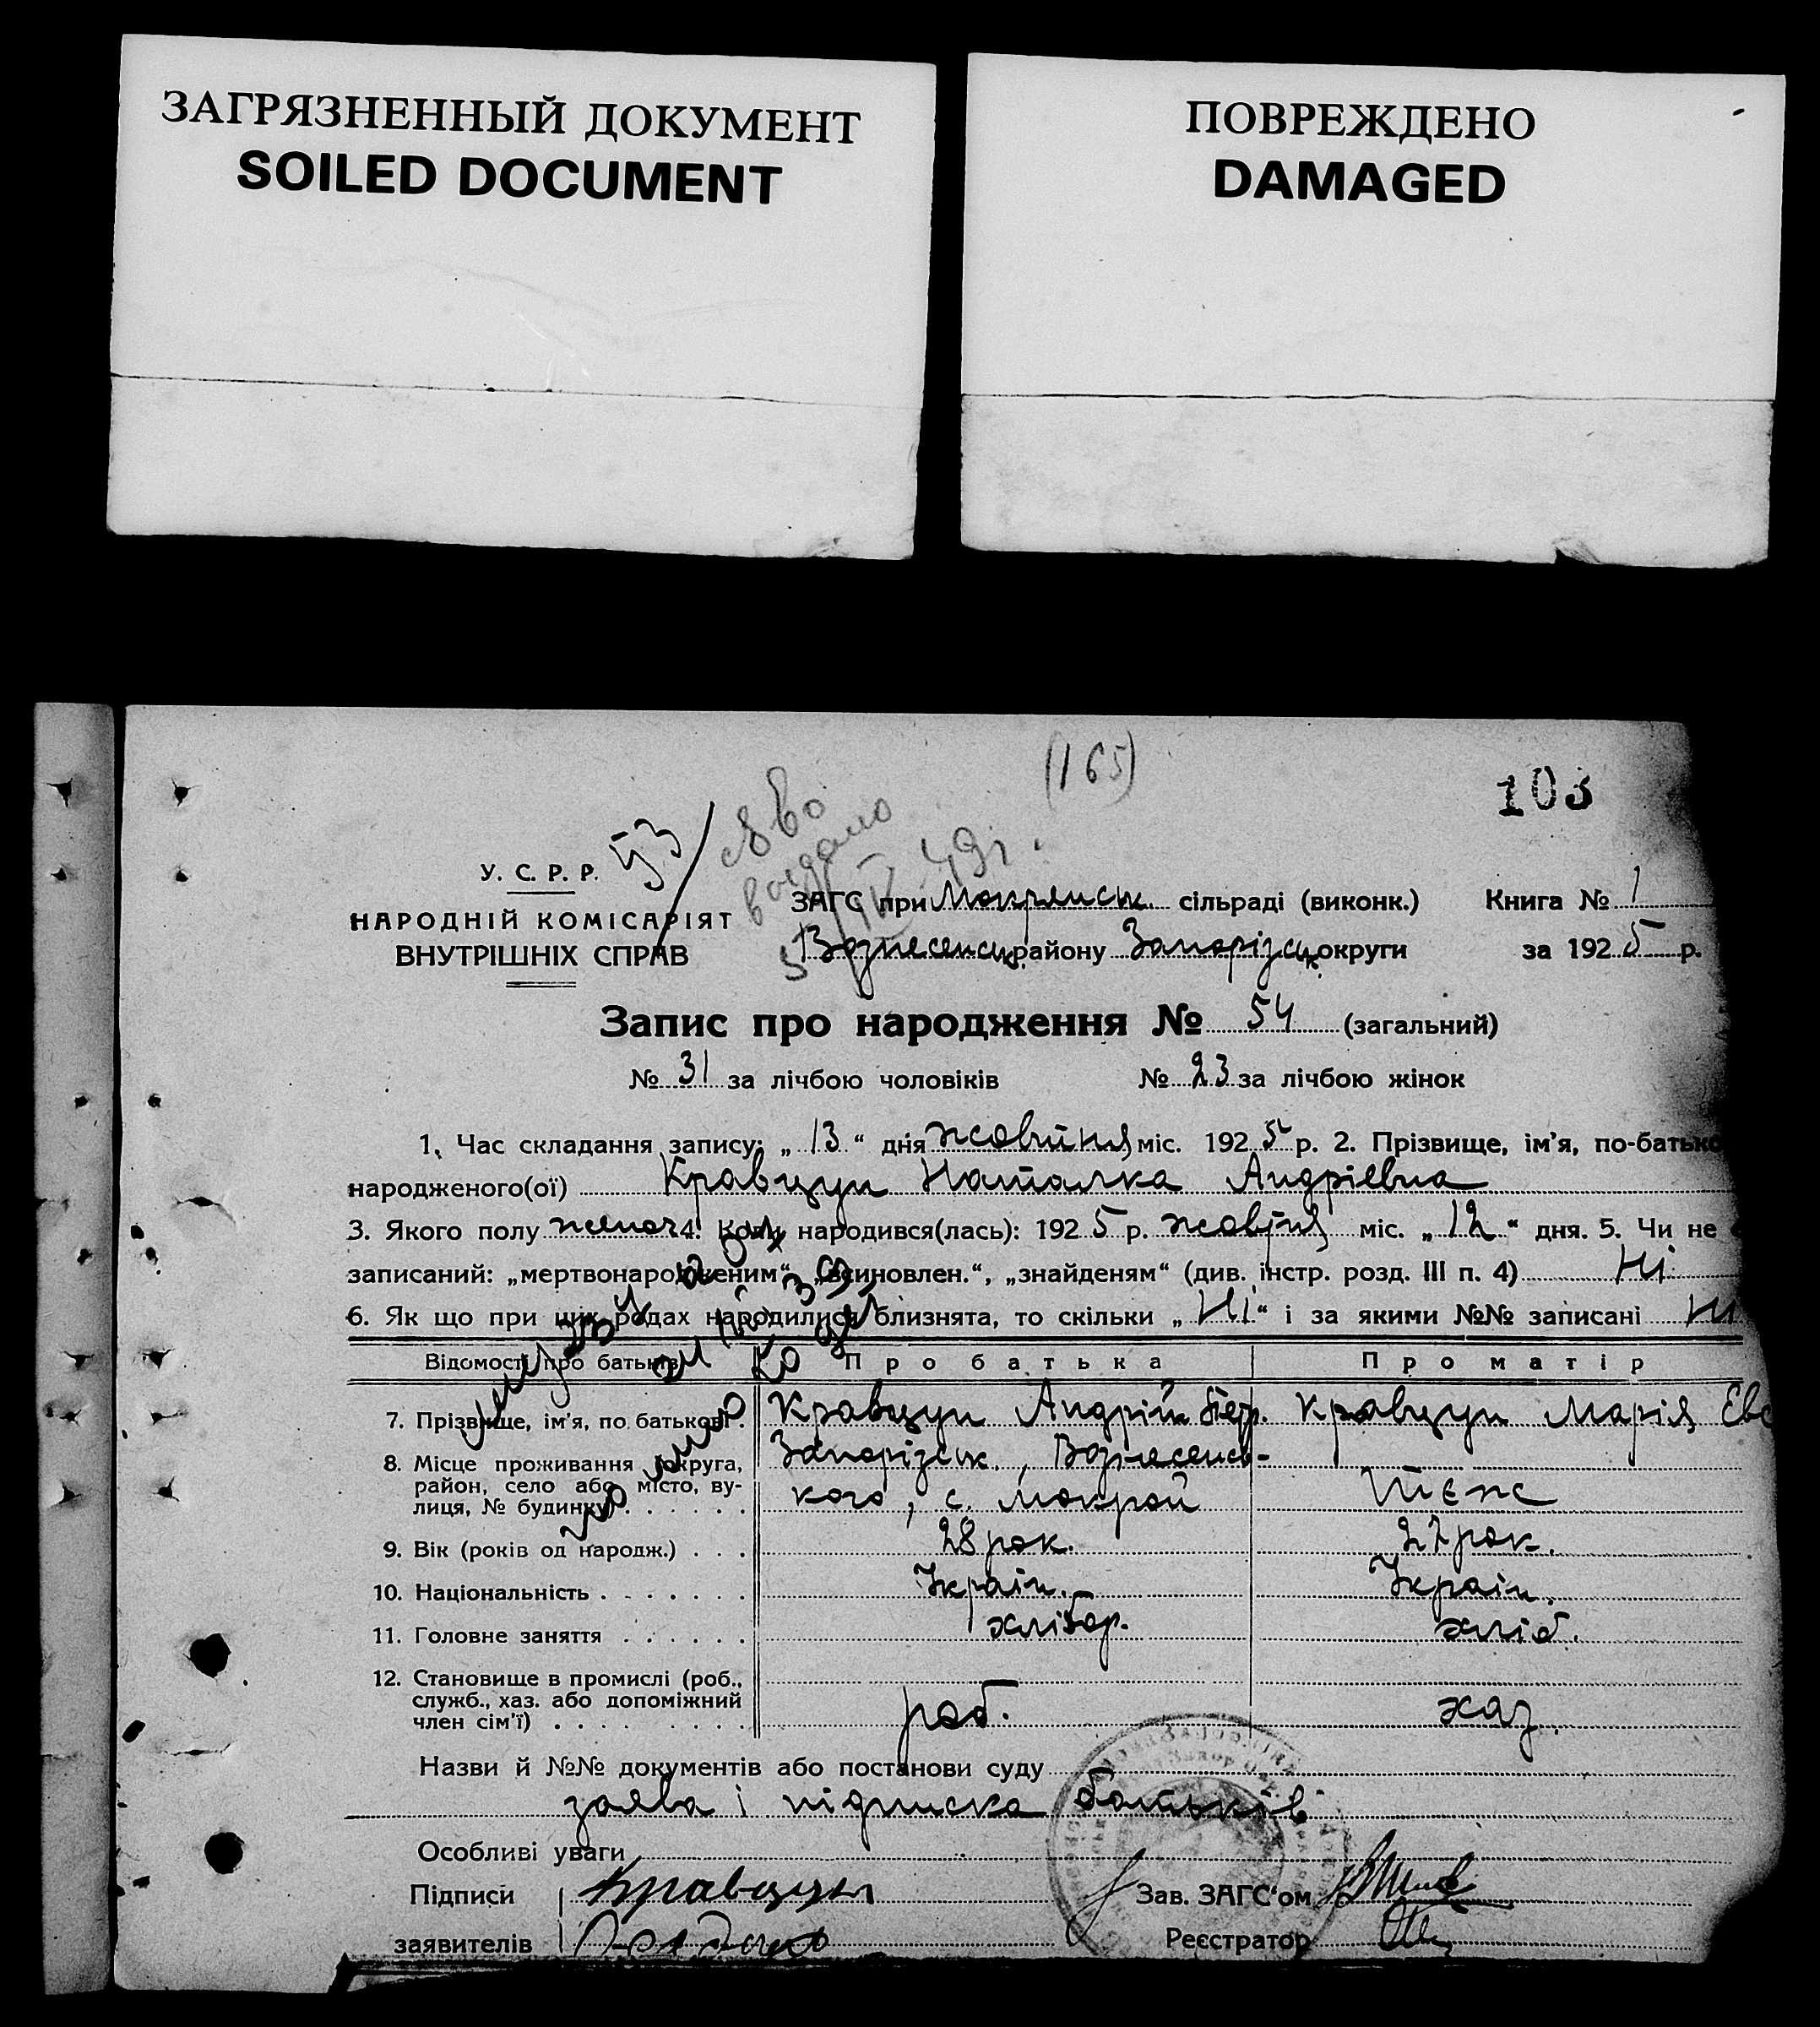 ЗАГРЯЗНЕННЫЙ ДОКУМЕНТ
SOILED DOCUMENT
ПОВРЕЖДЕНО
DAMAGED
(165)
103
53
св во
выдано
49г.
У. С. Р. Р.
НАРОДНІЙ КОМІСАРІЯТ
ВНУТРІШНІХ СПРАВ
ЗАГС при Мокрянськ. сільраді (виконк.) Книга № 1
Вознесенськ. району Запорізьк. округи за 1925 р.
Запис про народження № 54 (загальний)
№ 31 за лічбою чоловіків № 23 за лічбою жінок
1. Час складання запису: „13“ дня жовтня міс. 1925 р. 2. Прізвище, ім'я, по-батько
народженого(ої) Кравцун Наталка Андріевна
3. Якого полу жіноч 4. Коли народився(лась): 1925 р. жовтня міс. „12“ дня. 5. Чи не
записаний: „мертвонародженим“, „всиновлен.“, „знайденям“ (див. інстр. розд. III п. 4) Ні
6. Як що при цих родах народилися близнята, то скільки „Ні“ і за якими №№ записані Ні
Відомості про батьків Про батька Про матір
7. Прізвище, ім'я, по батькові. Кравцун Андрій Петр. Кравцун Марія Евс
8. Місце проживання (округа, район, село або місто, вулиця, № будинку) Запорізьк., Вознесенсь-
кого, с. Мокрой Теж
9. Вік (років од народж.) 28 рок. 27 рок.
10. Національність Україн. Україн.
11. Головне заняття хлібор. хліб.
12. Становище в промислі (роб., служб., хаз. або допоміжний член сім'ї) роб. хаз.
Назви й №№ документів або постанови суду
заява і підписка батьків
Особливі уваги
Підписи Кравцун Зав. ЗАГС'ом
заявителів Реєстратор